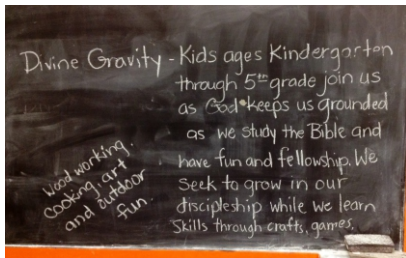 Divine Gravity - Kids ages Kindergarten
through 5th grade join us
as God keeps us grounded
as we study the Bible and
have fun and fellowship. We
seek to grow in our
discipleship while we learn
skills through crafts, games,
Wood working,
cooking, art
and outdoor
fun.